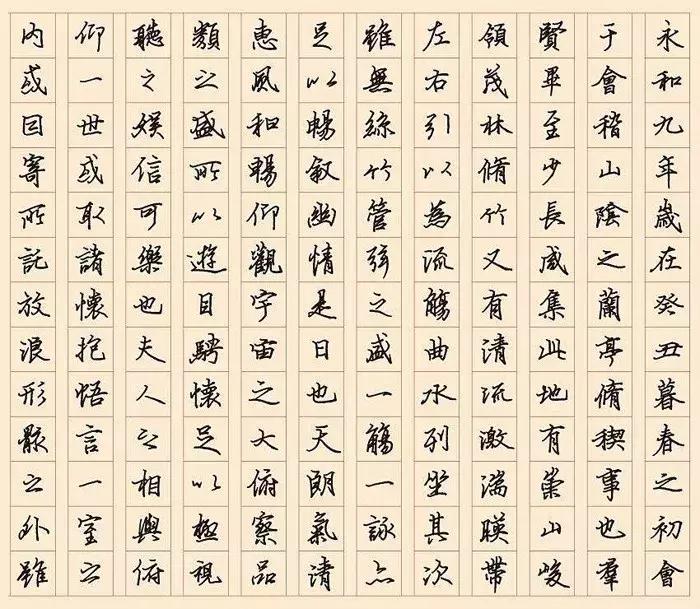 永和九年歲在癸丑暮春之初會
于會稽山陰之蘭亭脩稧事也羣
賢畢至少長咸集此地有崇山峻
領茂林脩竹又有清流激湍暎帶
左右引以為流觴曲水列坐其次
雖無絲竹管弦之盛一觴一詠亦
足以暢叙幽情是日也天朗氣清
惠風和暢仰觀宇宙之大俯察品
類之盛所以遊目騁懷足以極視
聽之娛信可樂也夫人之相與俯
仰一世或取諸懷抱悟言一室之
內或因寄所託放浪形骸之外雖